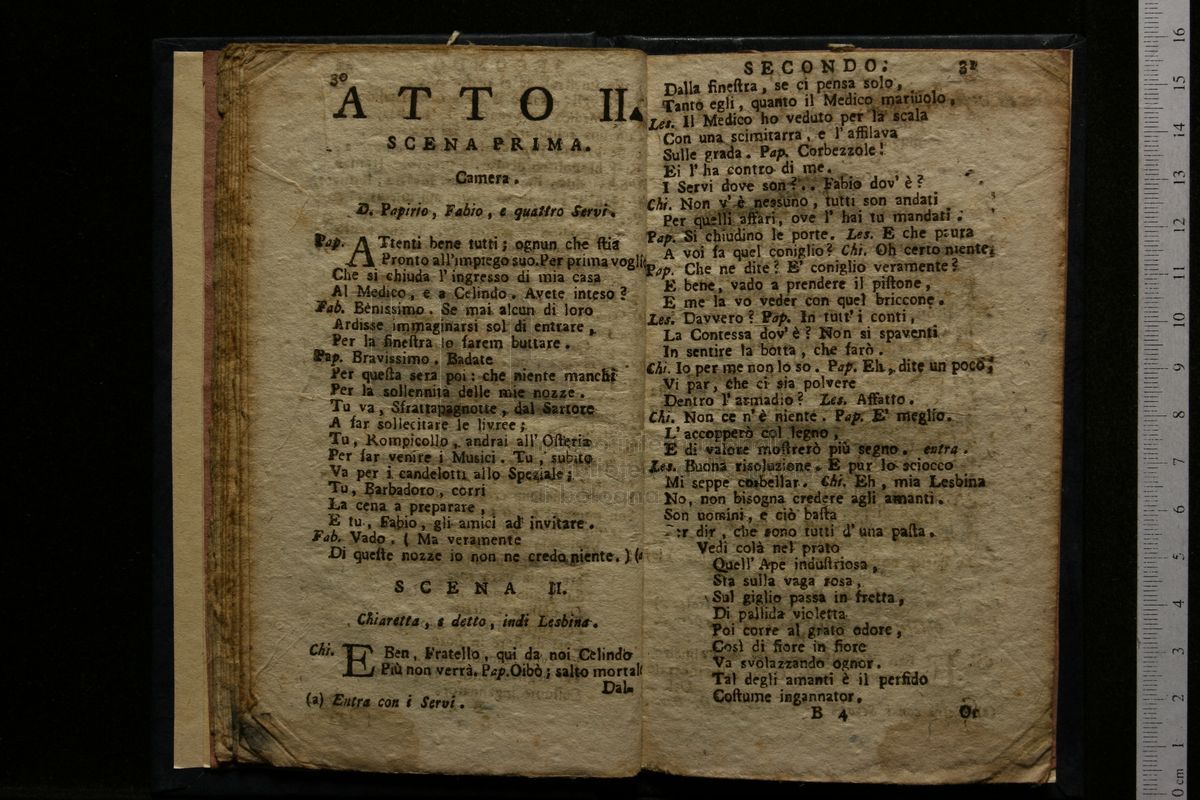 30
ATTO II.
SCENA PRIMA.
Camera.
D. Papirio, Fabio, e quattro Servi.
Pap. ATtenti bene tutti; ognun che ſtia
Pronto all'impiego suo. Per prima voglio
Che si chiuda l'ingresso di mia casa
Al Medico, e a Celindo. Avete inteso?
Fab. Benissimo. Se mai alcun di loro
Ardisse immaginarsi sol di entrare,
Per la fineſtra lo farem buttare.
Pap. Bravissimo. Badate
Per queſta sera poi: che niente manchi
Per la sollennità delle mie nozze.
Tu va, Sfrattapagnotte, dal Sartore
A far sollecitare le livree;
Tu, Rompicollo, andrai all' Oſteria
Per far venire i Musici. Tu, subito
Va per i candelotti allo Speziale;
Tu, Barbadoro, corri
La cena a preparare,
E tu, Fabio, gli amici ad' invitare.
Fab. Vado. ( Ma veramente
Di queſte nozze io non ne credo niente. ) (a
SCENA II.
Chiaretta, e detto, indi Lesbina.
Chi. EBen, Fratello, qui da noi Celindo
Più non verrà. Pap. Oibò; salto mortale
Dal-
(a) Entra con i Servi.
SECONDO. 31
Dalla fineſtra, se ci pensa solo,
Tanto egli, quanto il Medico mariuolo,
Les. Il Medico ho veduto per la scala
Con una scimitarra, e l'affilava
Sulle grada. Pap. Corbezzole!
Ei l'ha contro di me.
I Servi dove son?.. Fabio dov' è?
Chi. Non v' è nessuno, tutti son andati
Per quelli affari, ove l' hai tu mandati.
Pap. Si chiudino le porte. Les. E che paura
A voi fa quel coniglio? Chi. Oh certo niente.
Pap. Che ne dite? E' coniglio veramente?
E bene, vado a prendere il piſtone,
E me la vo veder con quel briccone.
Les. Davvero? Pap. In tutt' i conti,
La Contessa dov' è? Non si spaventi
In sentire la botta, che farò.
Chi. Io per me non lo so. Pap. Eh, dite un poco;
Vi par, che ci sia polvere
Dentro l' armadio? Les. Affatto.
Chi. Non ce n' è niente. Pap. E' meglio.
L' accopperò col legno,
E di valore moſtrerò più segno. entra.
Les. Buona risoluzione. E pur lo sciocco
Mi seppe corbellar. Chi. Eh, mia Lesbina
No, non bisogna credere agli amanti.
Son uomini, e ciò baſta
er dir, che sono tutti d' una paſta.
Vedi colà nel prato
Quell' Ape induſtriosa,
Sta sulla vaga rosa,
Sul giglio passa in fretta,
Di pallida violetta
Poi corre al grato odore,
Così di fiore in fiore
Va svolazzando ognor.
Tal degli amanti è il perfido
Coſtume ingannator.
B 4 Or